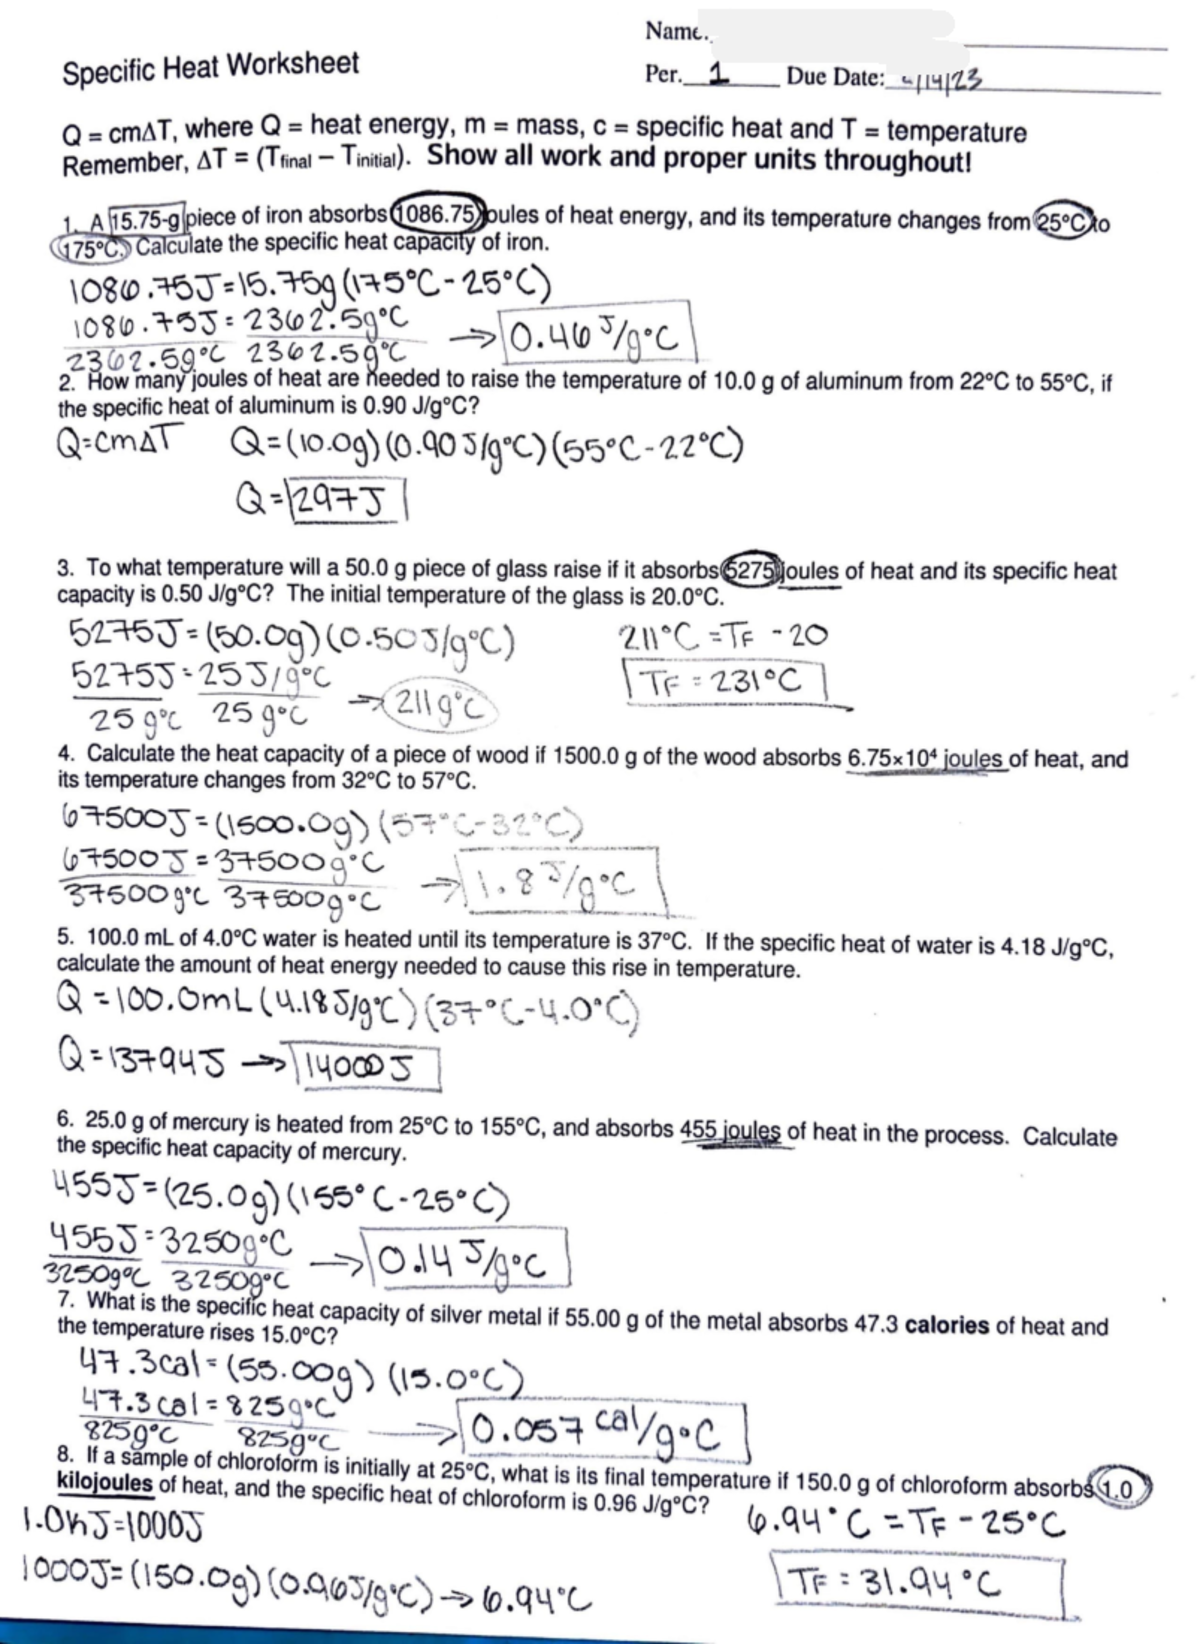 Name.
Specific Heat Worksheet
Per. 1 Due Date: /14/23
Q = cmΔT, where Q = heat energy, m = mass, c = specific heat and T = temperature
Remember, ΔT = (Tfinal – Tinitial). Show all work and proper units throughout!
1. A 15.75-g piece of iron absorbs 1086.75 joules of heat energy, and its temperature changes from 25°C to
175°C. Calculate the specific heat capacity of iron.
1086.75J=15.75g(175°C-25°C)
1086.75J = 2362.5g°C
2362.5g°C 2362.5g°C → 0.46 J/g°C
2. How many joules of heat are needed to raise the temperature of 10.0 g of aluminum from 22°C to 55°C, if
the specific heat of aluminum is 0.90 J/g°C?
Q=cmΔT Q=(10.0g)(0.90J/g°C)(55°C-22°C)
Q=297J
3. To what temperature will a 50.0 g piece of glass raise if it absorbs 5275 joules of heat and its specific heat
capacity is 0.50 J/g°C? The initial temperature of the glass is 20.0°C.
5275J=(50.0g)(0.50J/g°C) 211°C =TF -20
5275J=25J/g°C TF = 231°C
25g°C 25g°C → 211g°C
4. Calculate the heat capacity of a piece of wood if 1500.0 g of the wood absorbs 6.75×10⁴ joules of heat, and
its temperature changes from 32°C to 57°C.
67500J=(1500.0g)(57°C-32°C)
67500J=37500g°C
37500g°C 37500g°C → 1.8 J/g°C
5. 100.0 mL of 4.0°C water is heated until its temperature is 37°C. If the specific heat of water is 4.18 J/g°C,
calculate the amount of heat energy needed to cause this rise in temperature.
Q =100.0mL(4.18J/g°C)(37°C-4.0°C)
Q=13794J → 14000J
6. 25.0 g of mercury is heated from 25°C to 155°C, and absorbs 455 joules of heat in the process. Calculate
the specific heat capacity of mercury.
455J=(25.0g)(155°C-25°C)
455J=3250g°C
3250g°C 3250g°C → 0.14 J/g°C
7. What is the specific heat capacity of silver metal if 55.00 g of the metal absorbs 47.3 calories of heat and
the temperature rises 15.0°C?
47.3cal=(55.00g)(15.0°C)
47.3cal=825g°C
825g°C 825g°C → 0.057 cal/g°C
8. If a sample of chloroform is initially at 25°C, what is its final temperature if 150.0 g of chloroform absorbs 1.0
kilojoules of heat, and the specific heat of chloroform is 0.96 J/g°C?
1.0kJ=1000J 6.94°C =TF -25°C
1000J=(150.0g)(0.96J/g°C) → 6.94°C TF = 31.94°C